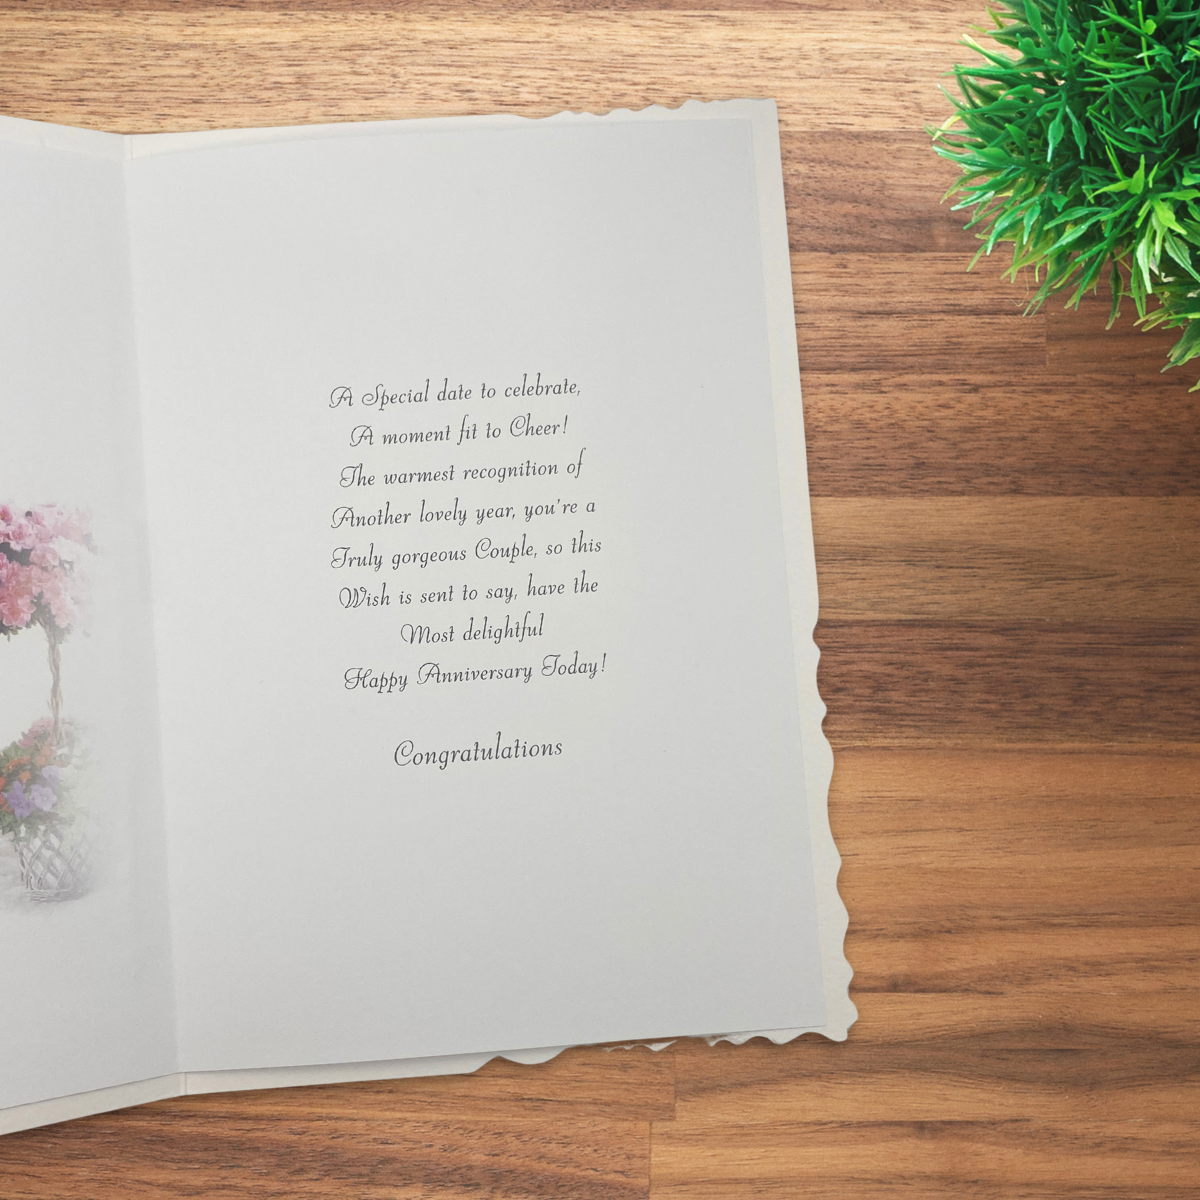 A Special date to celebrate,
A moment fit to Cheer!
The warmest recognition of
Another lovely year, you're a
Truly gorgeous Couple, so this
Wish is sent to say, have the
Most delightful
Happy Anniversary Today!
Congratulations